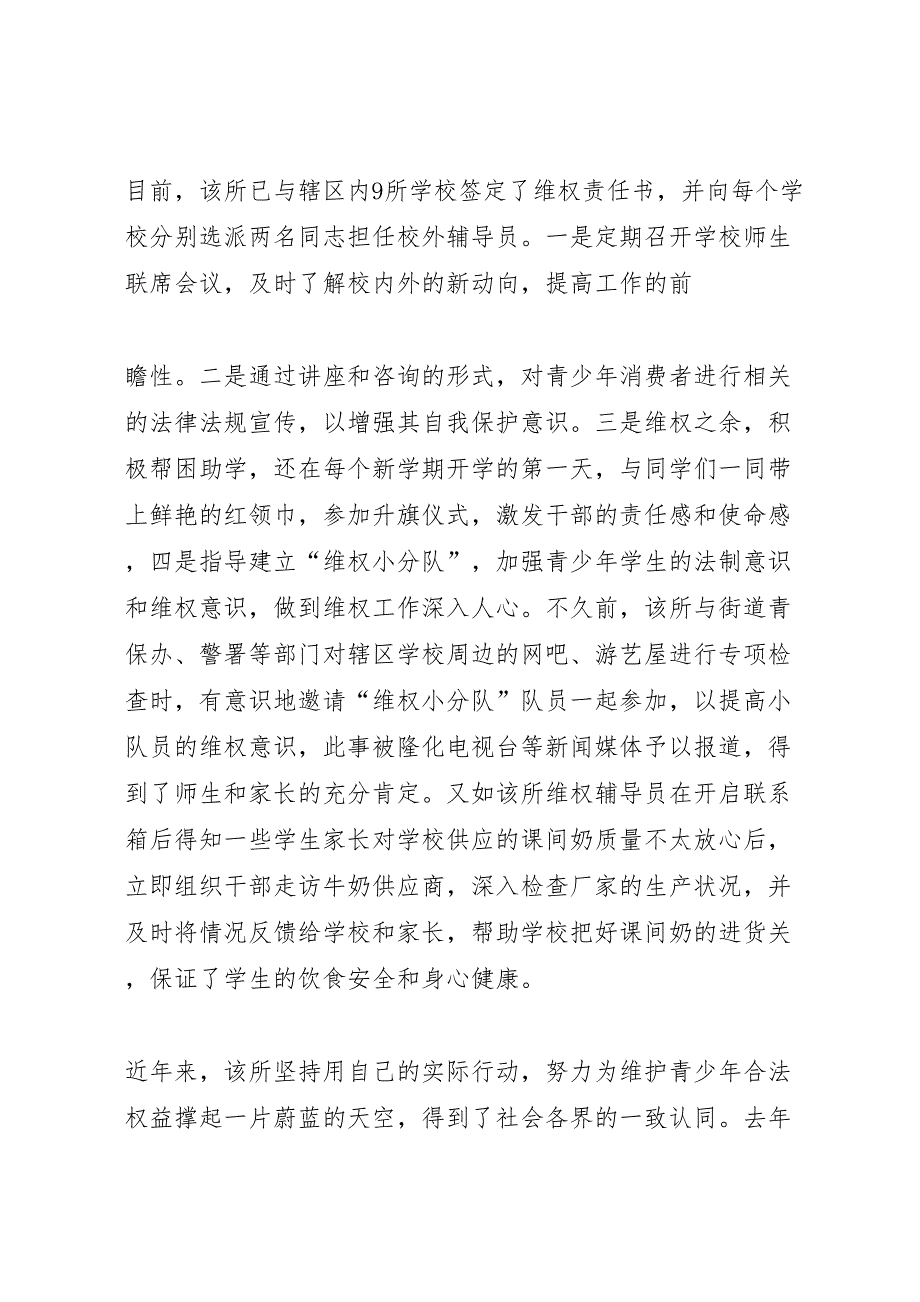 目前，该所已与辖区内9所学校签定了维权责任书，并向每个学
校分别选派两名同志担任校外辅导员。一是定期召开学校师生
联席会议，及时了解校内外的新动向，提高工作的前
瞻性。二是通过讲座和咨询的形式，对青少年消费者进行相关
的法律法规宣传，以增强其自我保护意识。三是维权之余，积
极帮困助学，还在每个新学期开学的第一天，与同学们一同带
上鲜艳的红领巾，参加升旗仪式，激发干部的责任感和使命感
，四是指导建立“维权小分队”，加强青少年学生的法制意识
和维权意识，做到维权工作深入人心。不久前，该所与街道青
保办、警署等部门对辖区学校周边的网吧、游艺屋进行专项检
查时，有意识地邀请“维权小分队”队员一起参加，以提高小
队员的维权意识，此事被隆化电视台等新闻媒体予以报道，得
到了师生和家长的充分肯定。又如该所维权辅导员在开启联系
箱后得知一些学生家长对学校供应的课间奶质量不太放心后，
立即组织干部走访牛奶供应商，深入检查厂家的生产状况，并
及时将情况反馈给学校和家长，帮助学校把好课间奶的进货关
，保证了学生的饮食安全和身心健康。
近年来，该所坚持用自己的实际行动，努力为维护青少年合法
权益撑起一片蔚蓝的天空，得到了社会各界的一致认同。去年